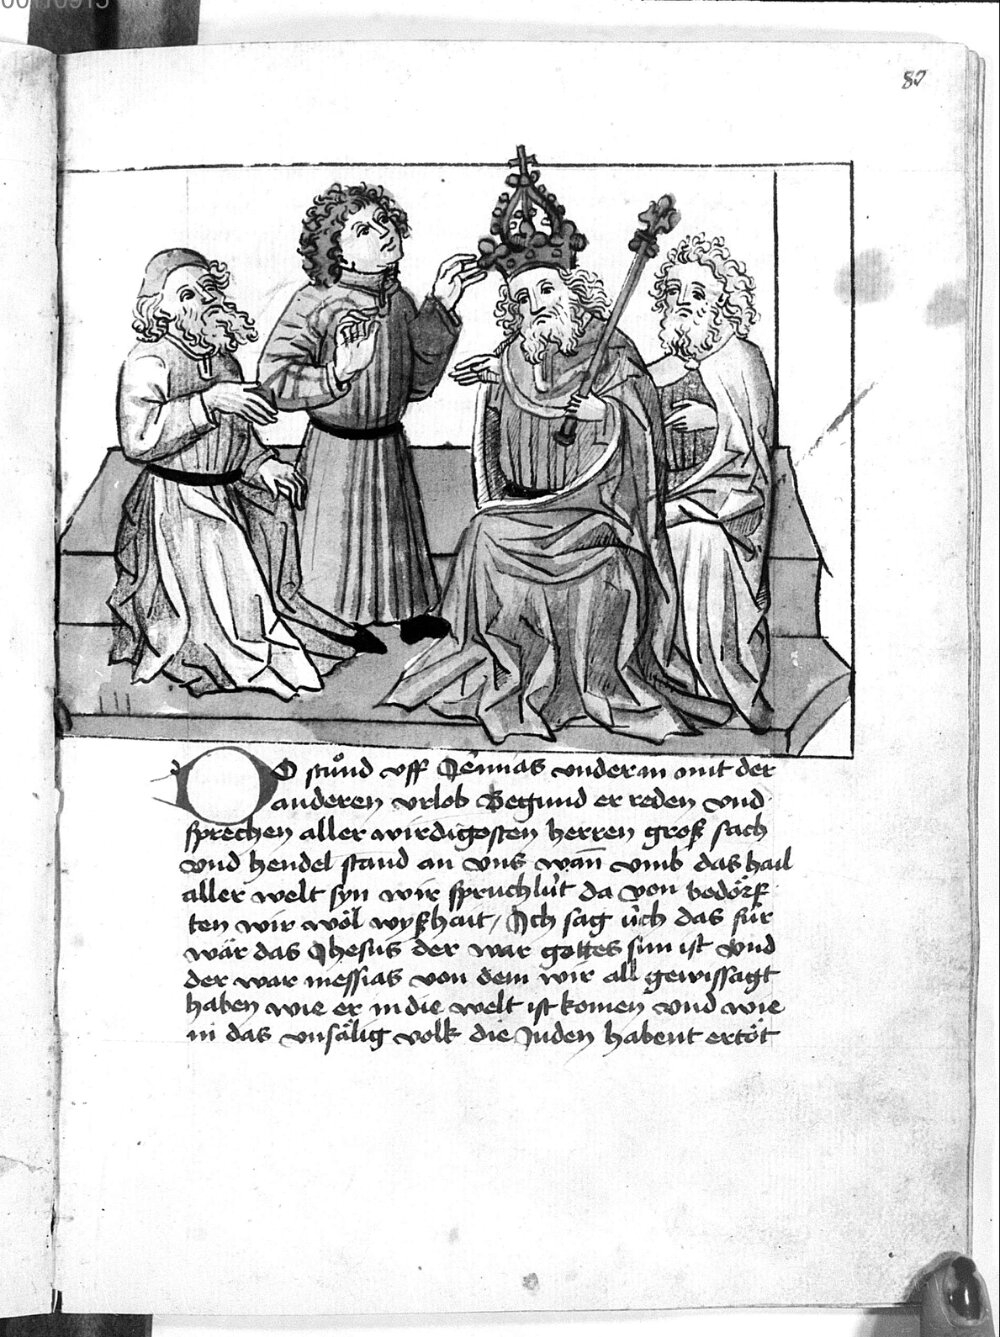 82
DO stuͦnd uff Jeremias underain mit der
anderen urlob Begund er reden vnd
sprechen aller wirdigosten herren groß sach
vnd hendel stand an vns wañ vmb das hail
aller welt syn wir spruchlu̍t da von bedörf
ten wir wöl wyßhait / Jch sag u̍ch das fu̍r
wär das Jhesus der war gottes sun ist vnd
der war messias von dem wir all gewissagt
haben wie er in die welt ist komen vnd wie
in das vnsälig volk die Juden habent ertöt